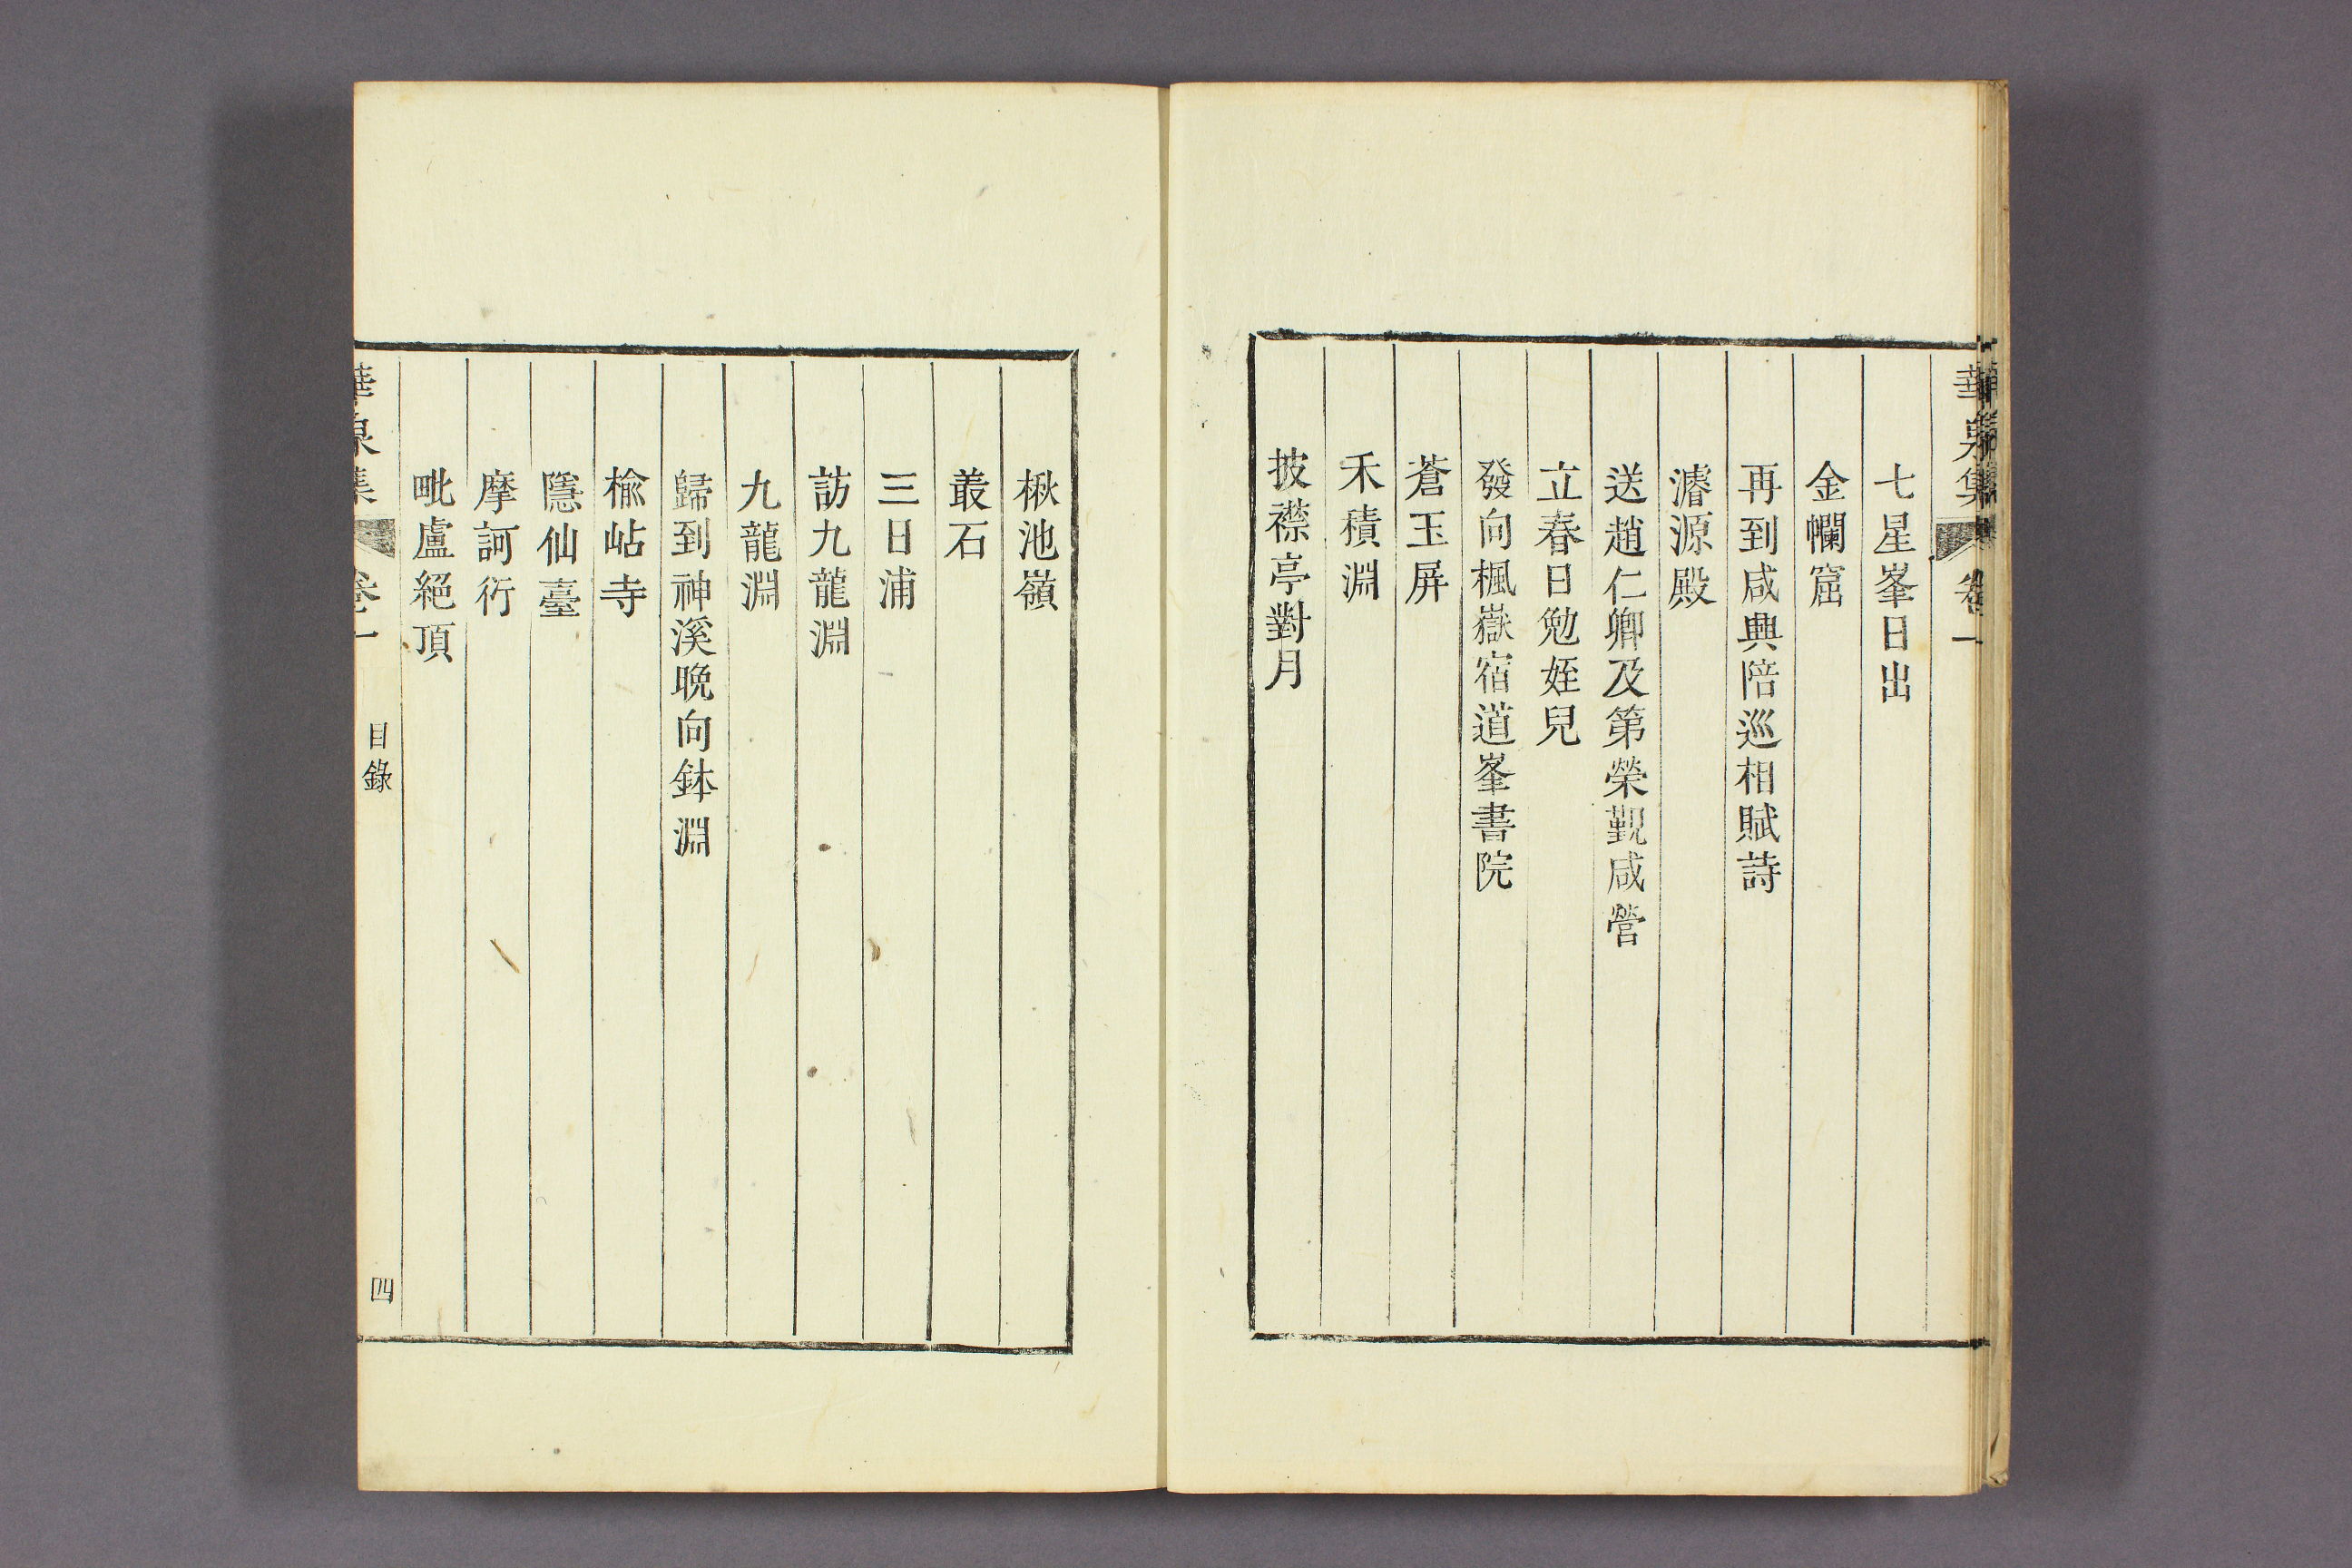 華泉集 卷一
七星峯日出
金幱窟
再到咸興陪巡相賦詩
濬源殿
送趙仁卿及第榮覲咸營
立春日勉姪兒
發向楓嶽宿道峯書院
蒼玉屏
禾積淵
披襟亭對月
楸池嶺
叢石
三日浦
訪九龍淵
九龍淵
歸到神溪晩向鉢淵
楡岾寺
隱仙臺
摩訶衍
毗盧絕頂
華泉集 卷一 目錄 四